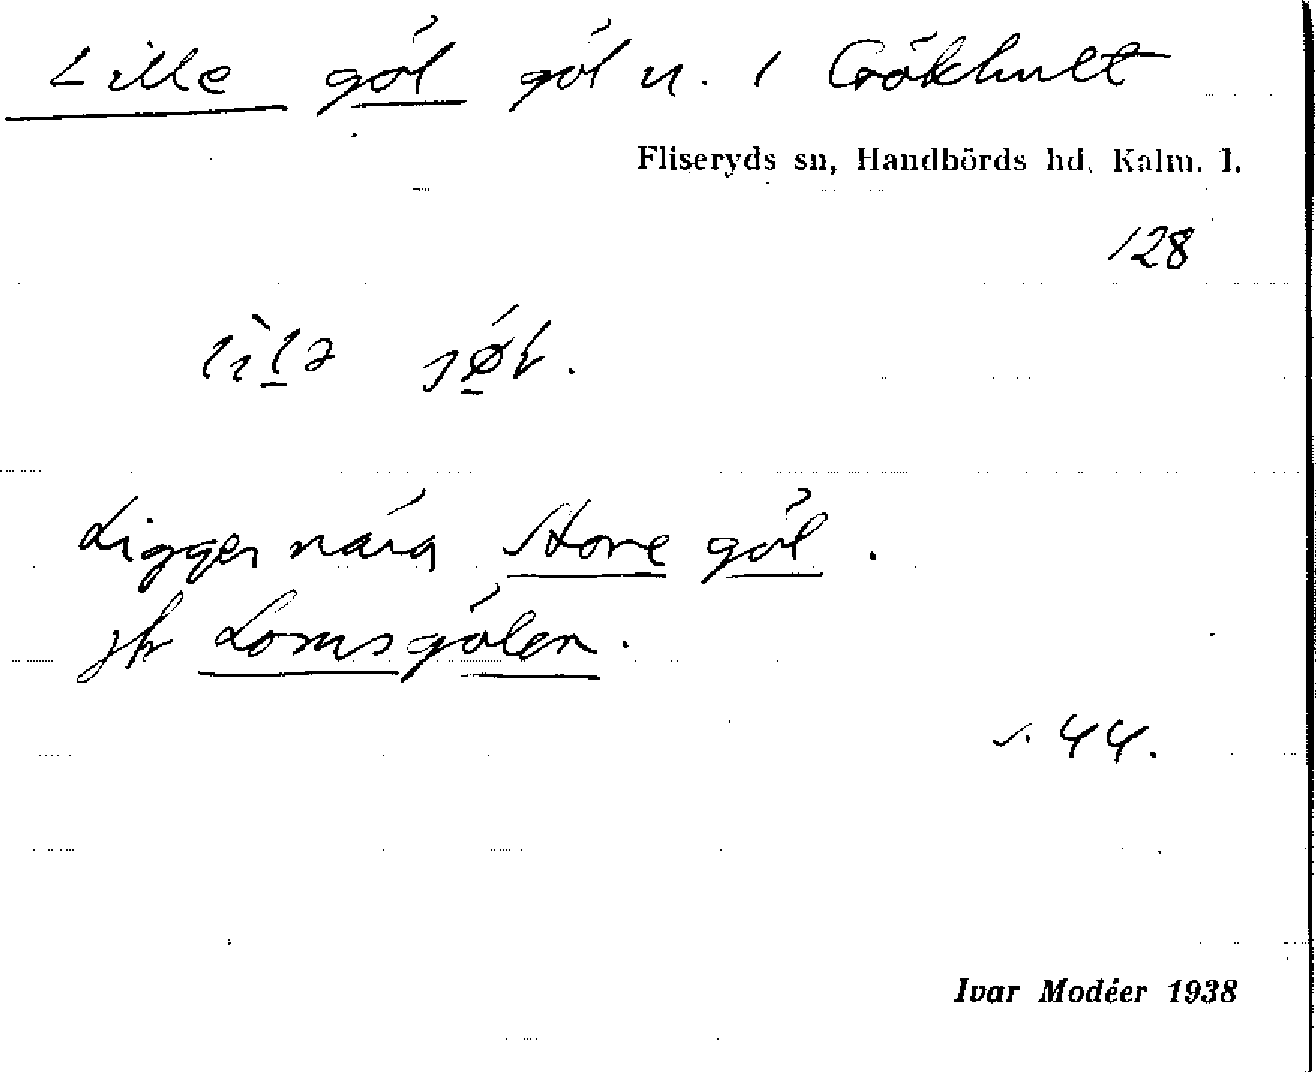 Lille göl göl u. / Gökhult
Fliseryds sn, Handbörds hd, Kalm. l.
128
Ligger nära Store göl.
jfr Lomsgölen.
s. 44.
Ivar Modéer 1938